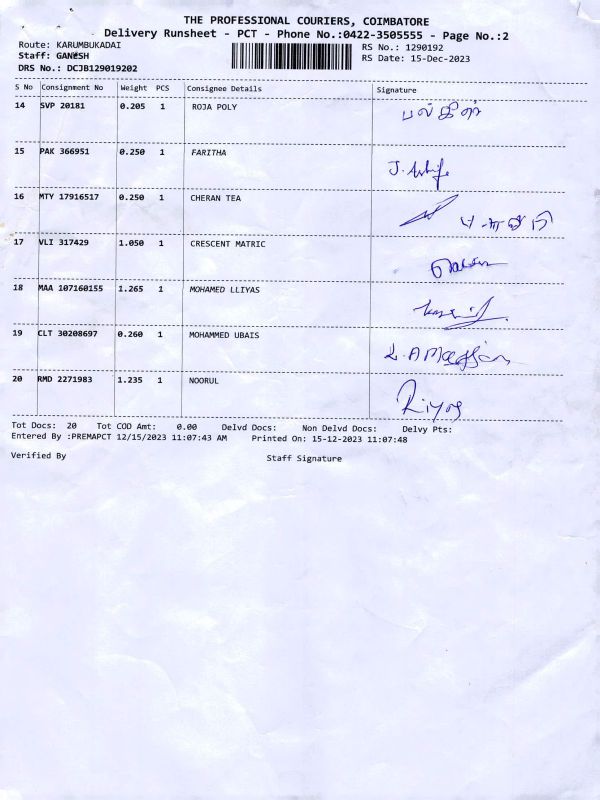 THE PROFESSIONAL COURIERS, COIMBATORE
Delivery Runsheet - PCT - Phone No.:0422-3505555 - Page No.:2
Route: KARUMBUKADAI RS No.: 1290192
Staff: GANESH RS Date: 15-Dec-2023
DRS No.: DCJB129019202
S No Consignment No Weight PCS Consignee Details Signature
14 SVP 20181 0.205 1 ROJA POLY
15 PAK 366951 0.250 1 FARITHA
16 MTY 17916517 0.250 1 CHERAN TEA
17 VLI 317429 1.050 1 CRESCENT MATRIC
18 MAA 107160155 1.265 1 MOHAMED LLIYAS
19 CLT 30208697 0.260 1 MOHAMMED UBAIS
20 RMD 2271983 1.235 1 NOORUL
Riyas
Tot Docs: 20 Tot COD Amt: 0.00 Delvd Docs: Non Delvd Docs: Delvy Pts:
Entered By :PREMAPCT 12/15/2023 11:07:43 AM Printed On: 15-12-2023 11:07:48
Verified By Staff Signature